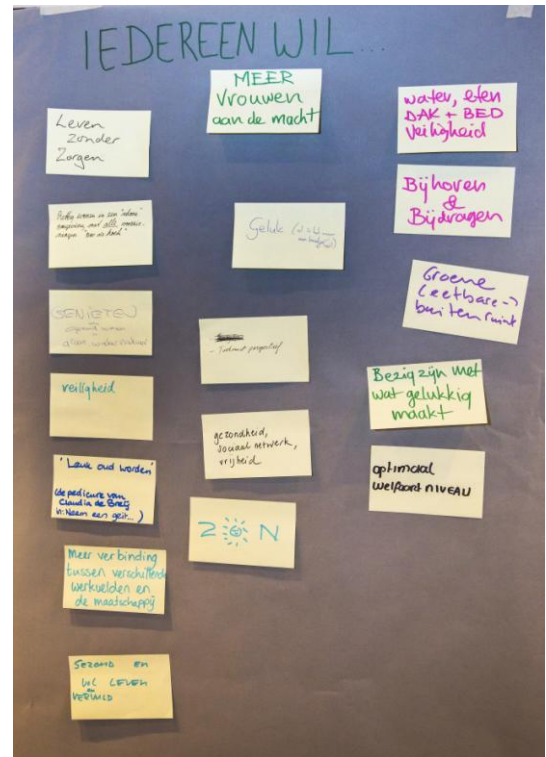 IEDEREEN WIL...
Leven
zonder
Zorgen
veiligheid
'Leuk oud worden'
(de pedicure van
Claudia de Breij
in: Neem een geit...)
Meer verbinding
tussen verschillende
werkvelden en
de maatschappij
GEZOND EN
VOL LEVEN
MEER
Vrouwen
aan de macht
Geluk
gezondheid,
sociaal netwerk,
vrijheid
ZON
water, eten
DAK + BED
Veiligheid
Bijhoren
&
Bijdragen
Groene
(eetbare-)
buitenruimte
Bezig zijn met
wat gelukkig
maakt
optimaal
welfaart NIVEAU